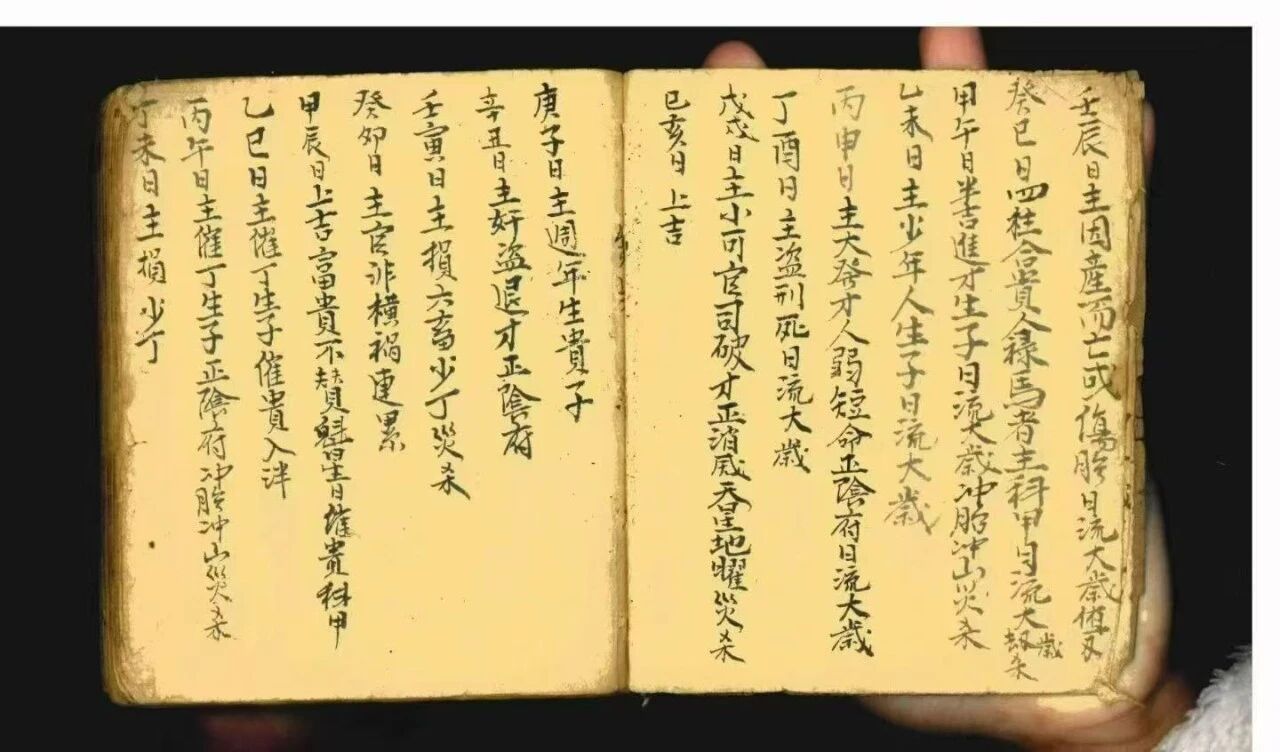 壬辰日主因產而亡或傷胎日流大歲
癸巳日四柱合貴人祿馬者主科甲日流大歲劫杀
甲午日半吉進才生子日流大歲冲胎冲山災杀
乙未日主少年人生子日流大歲
丙申日主大發才人弱短命正陰府日流大歲
丁酉日主盜刑死日流大歲
戊戌日主小可官司破才正消滅吞星地曜災杀
己亥日上吉
庚子日主週年生貴子
辛丑日主奸盜退才正陰府
壬寅日主損六畜少丁災杀
癸卯日主官非橫禍連累
甲辰日上吉富貴不替魁星日催貴科甲
乙巳日主催丁生子催貴入泮
丙午日主催丁生子正陰府冲胎冲山災杀
丁未日主損少丁